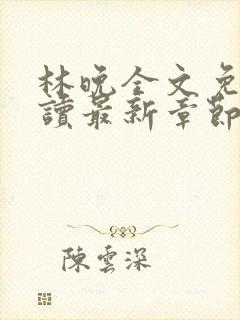 林晚全文免
讀最新章節
陳雲深